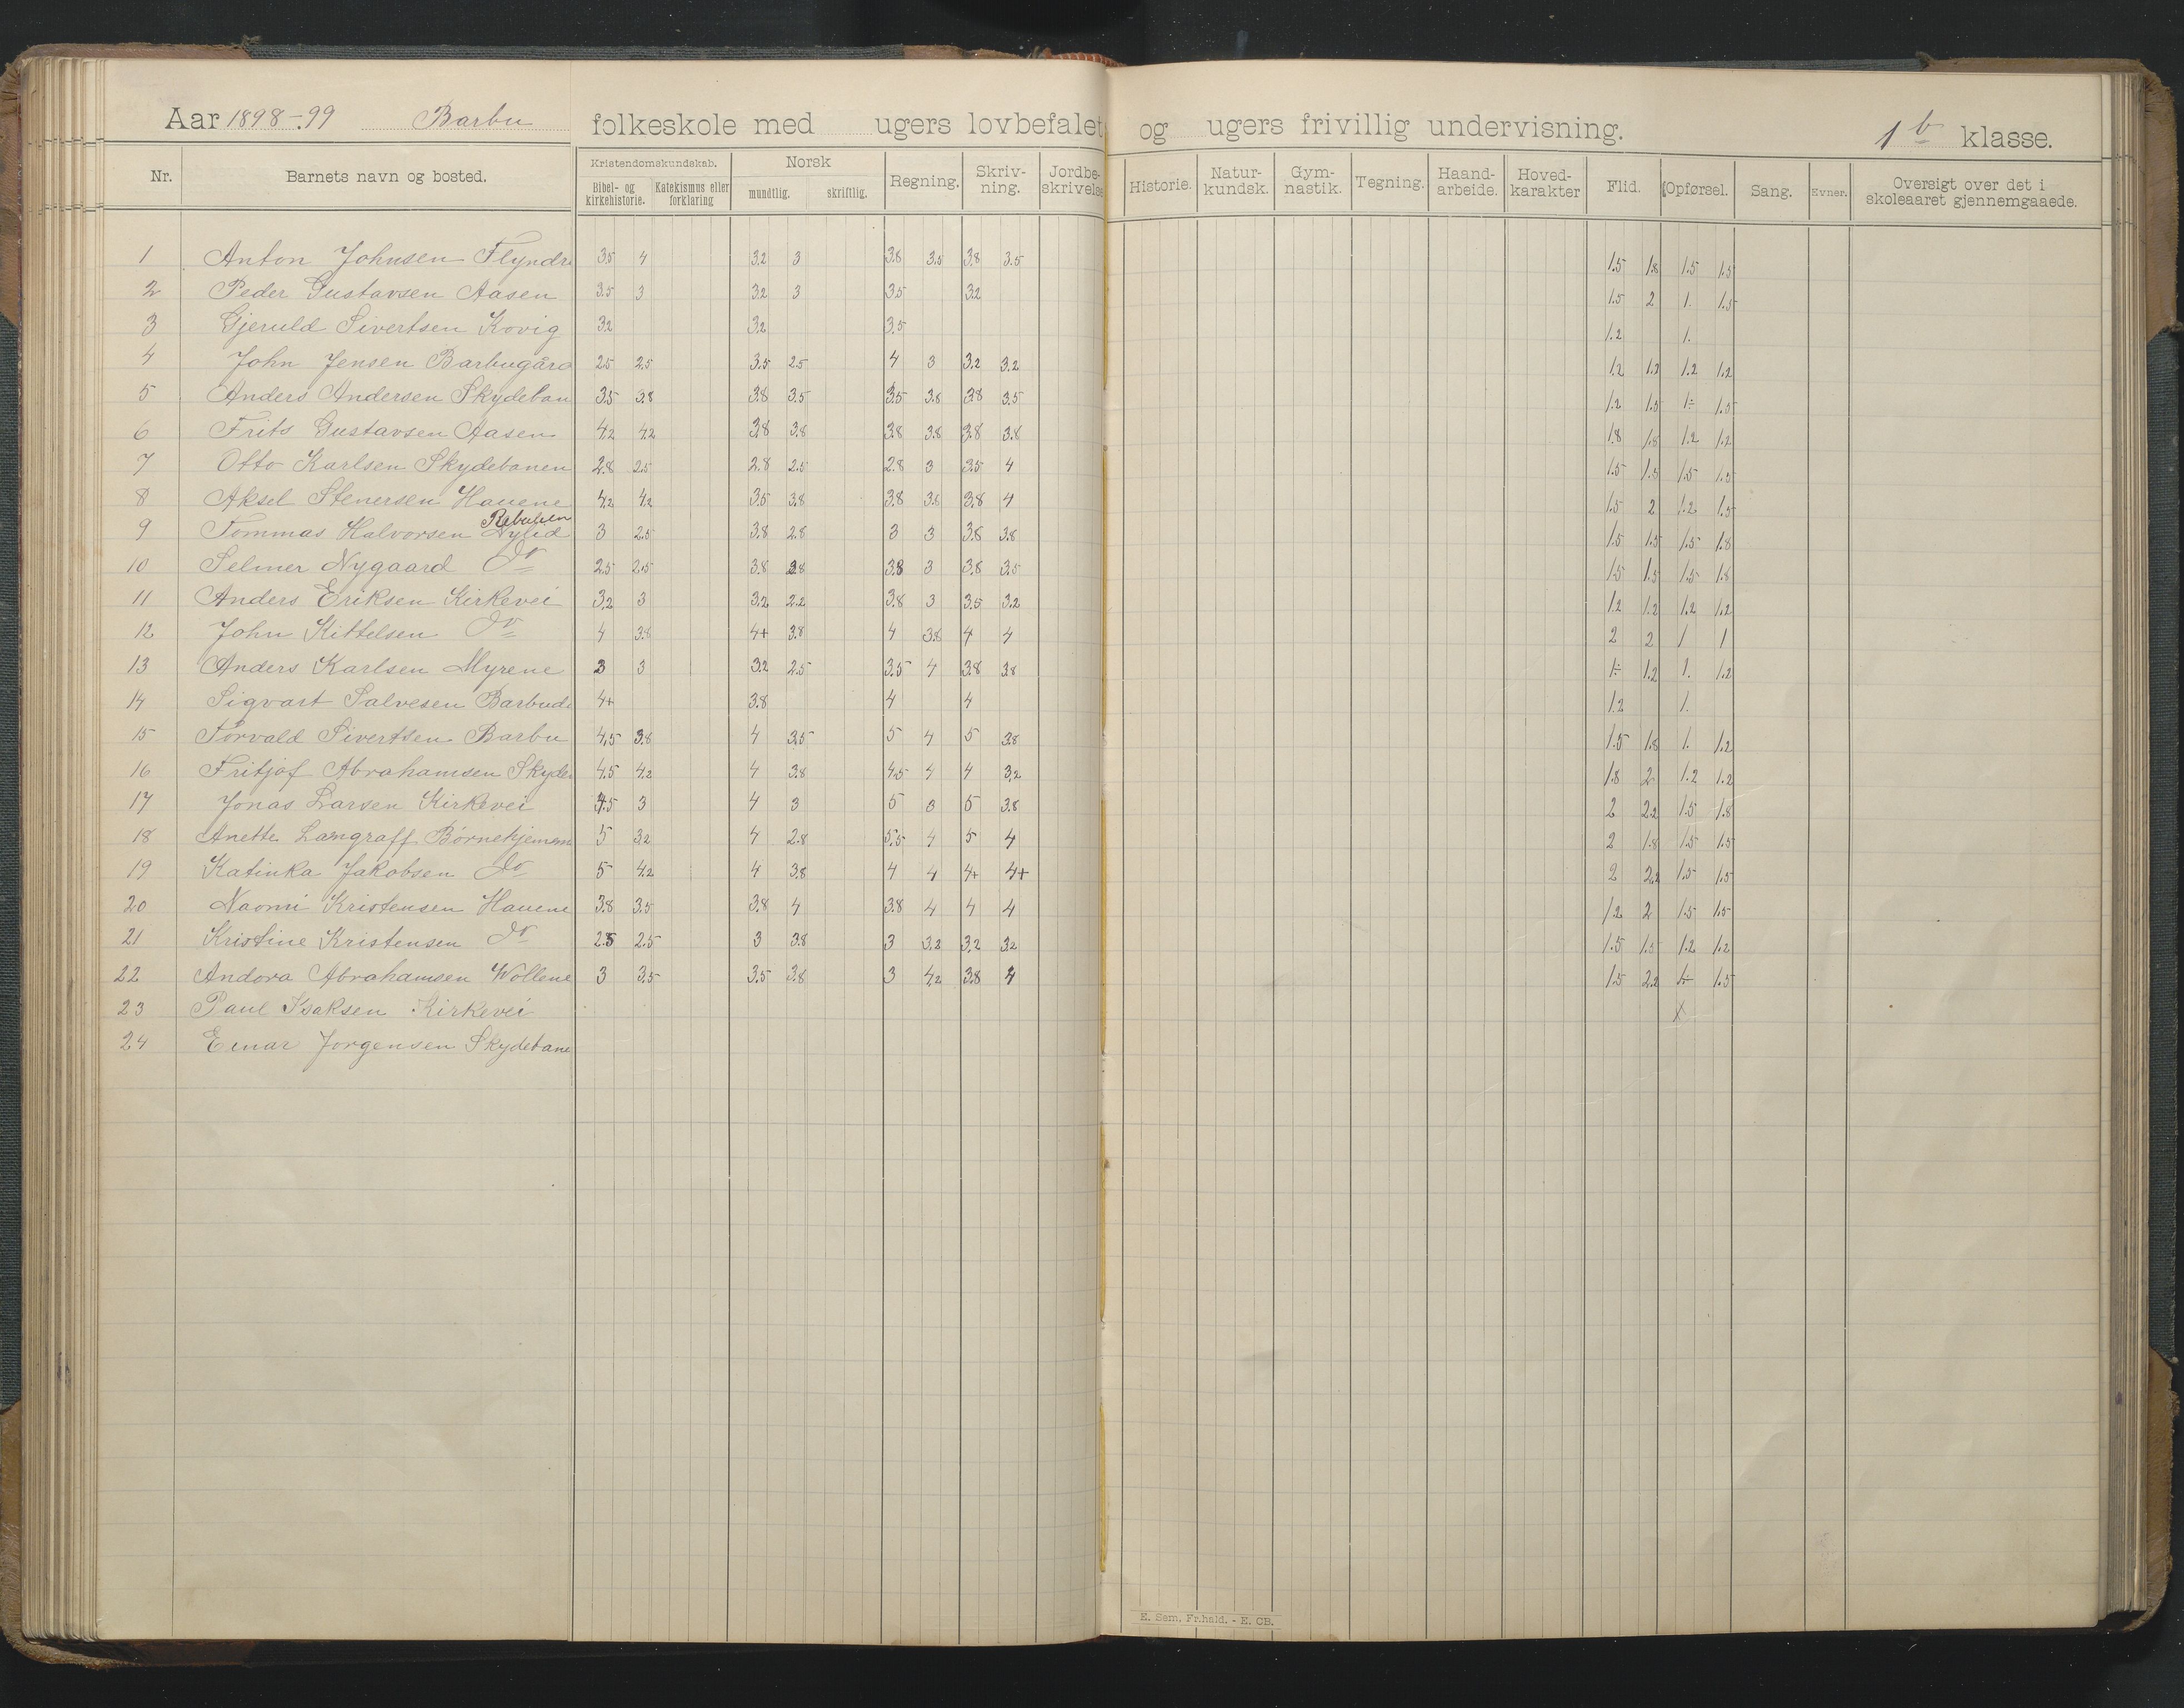 Aar 1898-99 Barbu folkeskole med ugers lovbefalet og ugers frivillig undervisning. 1b klasse.
Nr. Barnets navn og bosted. Kristendomskundskab. Bibel- og kirkehistorie. Katekismus eller forklaring Norsk mundtlig. skriftlig. Regning. Skriv-ning. Jordbe-skrivelse Historie. Natur-kundsk. Gym-nastik. Tegning. Haand-arbeide. Hoved-karakter Flid. Opførsel. Sang. Evner. Oversigt over det i skoleaaret gjennemgaaede.
1 Anton Johnsen Flyndre 3.5 4 3.2 3 3.8 3.5 3.8 3.5 1.5 1.8 1.5 1.5
2 Peder Gustavsen Aasen 3.5 3 3.2 3 3.5 3.2 1.5 2 1. 1.5
3 Gjeruld Sivertsen Kovig 3.2 3.2 3.5 1.2 1.
4 John Jensen Barbugård 2.5 2.5 3.5 2.5 4 3 3.2 3.2 1.2 1.2 1.2 1.2
5 Anders Andersen Skydeban 3.5 3.8 3.8 3.5 3.5 3.8 3.8 3.5 1.2 1.5 1÷ 1.5
6 Frits Gustavsen Aasen 4.2 4.2 3.8 3.8 3.8 3.8 3.8 3.8 1.8 1.8 1.2 1.2
7 Otto Karlsen Skydebanen 2.8 2.5 2.8 2.5 2.8 3 3.5 4 1.5 1.5 1.5 1.5
8 Aksel Stenersen Hauene 4.2 4.2 3.5 3.8 3.8 3.8 3.8 4 1.5 2 1.2 1.5
9 Tommas Halvorsen Nylid 3 2.5 3.8 2.8 3 3 3.8 3.8 1.5 1.5 1.5 1.8
10 Selmer Nygaard Do 2.5 2.5 3.8 3.8 3.8 3 3.8 3.5 1.5 1.5 1.5 1.8
11 Anders Eriksen Kirkevei 3.2 3 3.2 2.2 3.8 3 3.5 3.2 1.2 1.2 1.2 1.2
12 John Kittelsen Do 4 3.8 4+ 3.8 4 3.8 4 4 2 2 1 1
13 Anders Karlsen Myrene 3 3 3.2 2.5 3.5 4 3.8 3.8 1÷ 1.2 1. 1.2
14 Sigvart Salvesen Barbud 4+ 3.8 4 4 1.2 1.
15 Torvald Sivertsen Barbu 4.5 3.8 4 3.5 5 4 5 3.8 1.5 1.8 1. 1.2
16 Fritjof Abrahamsen Skyde 4.5 4.2 4 3.8 4.5 4 4 3.2 1.8 2 1.2 1.2
17 Jonas Larsen Kirkevei 4.5 3 4 3 5 3 5 3.8 2 2.2 1.5 1.8
18 Anette Langraff Børnehjemmm 5 3.2 4 2.8 5.5 4 5 4 2 1.8 1.5 1.5
19 Katinka Jakobsen Do 5 4.2 4 3.8 4 4 4+ 4+ 2 2.2 1.5 1.5
20 Naomi Kristensen Hauene 3.8 3.5 3.8 4 3.8 4 4 4 1.2 2 1.5 1.5
21 Kristine Kristensen Do 2.5 2.5 3 3.8 3 3.2 3.2 3.2 1.5 1.5 1.2 1.2
22 Andora Abrahamsen Wollene 3 3.5 3.5 3.8 3 4.2 3.8 4 1.5 2.2 1÷ 1.5
23 Paul Isaksen Kirkevei x
24 Einar Jørgensen Skydebane
E. Sem, Fr.hald. - E. CB.